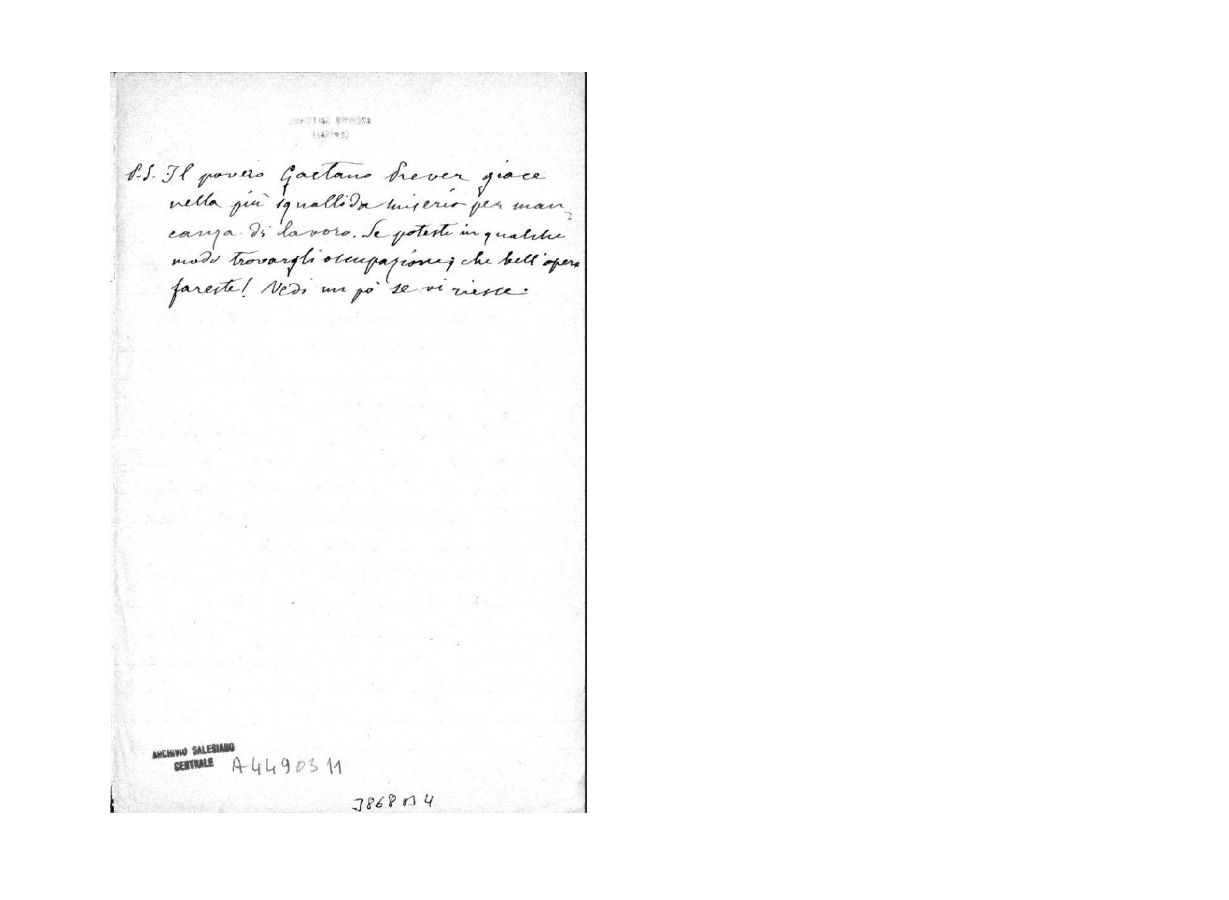 P.S. Il povero Gaetano Prever giace
nella più squallida miseria per man-
canza di lavoro. Se potesti in qualche
modo trovargli occupazione, che bell'opera
fareste! Vedi un pò se vi riesce.
ARCHIVIO SALESIANO
CENTRALE
A4490311
3868 B 4